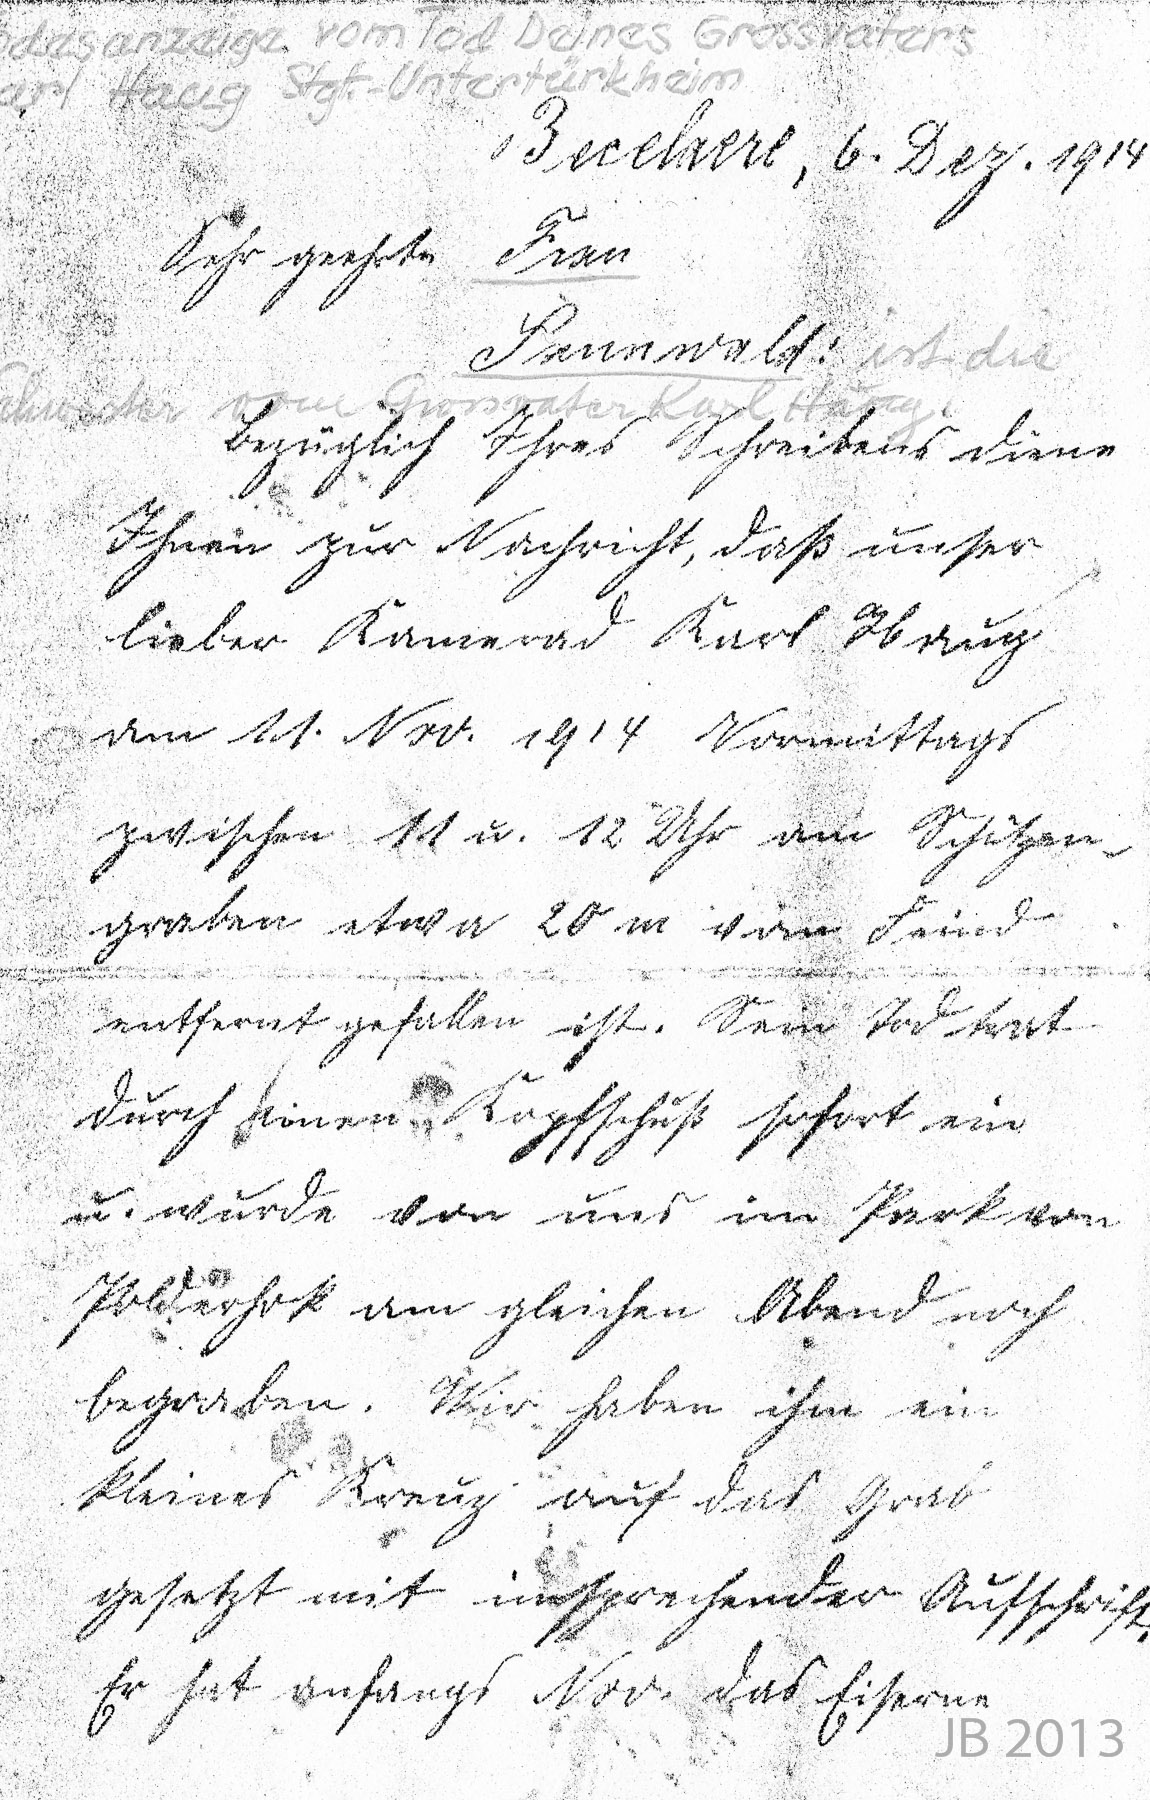 Todesanzeige vom Tod Deines Grossvaters
Karl Haug Stgt.-Untertürkheim
Becelaere, 6. Dez. 1914
Sehr geehrte Frau
Sennewald! ist die
Schwester vom Grossvater Karl Haug!
Bezüglich Ihres Schreibens diene
Ihnen zur Nachricht, daß unser
lieber Kamerad Karl Haug
am 11. Nov. 1914 Vormittags
zwischen 11 u. 12 Uhr am Schützen-
graben etwa 20 m vom Feind
entfernt gefallen ist. Sein Tod trat
durch einen Kopfschuß sofort ein
u. wurde von uns im Park von
Polderhok am gleichen Abend noch
begraben. Wir haben ihm ein
kleines Kreuz auf das Grab
gesetzt mit Aufschrift.
Er hat anfangs Nov. das Eiserne
JB 2013